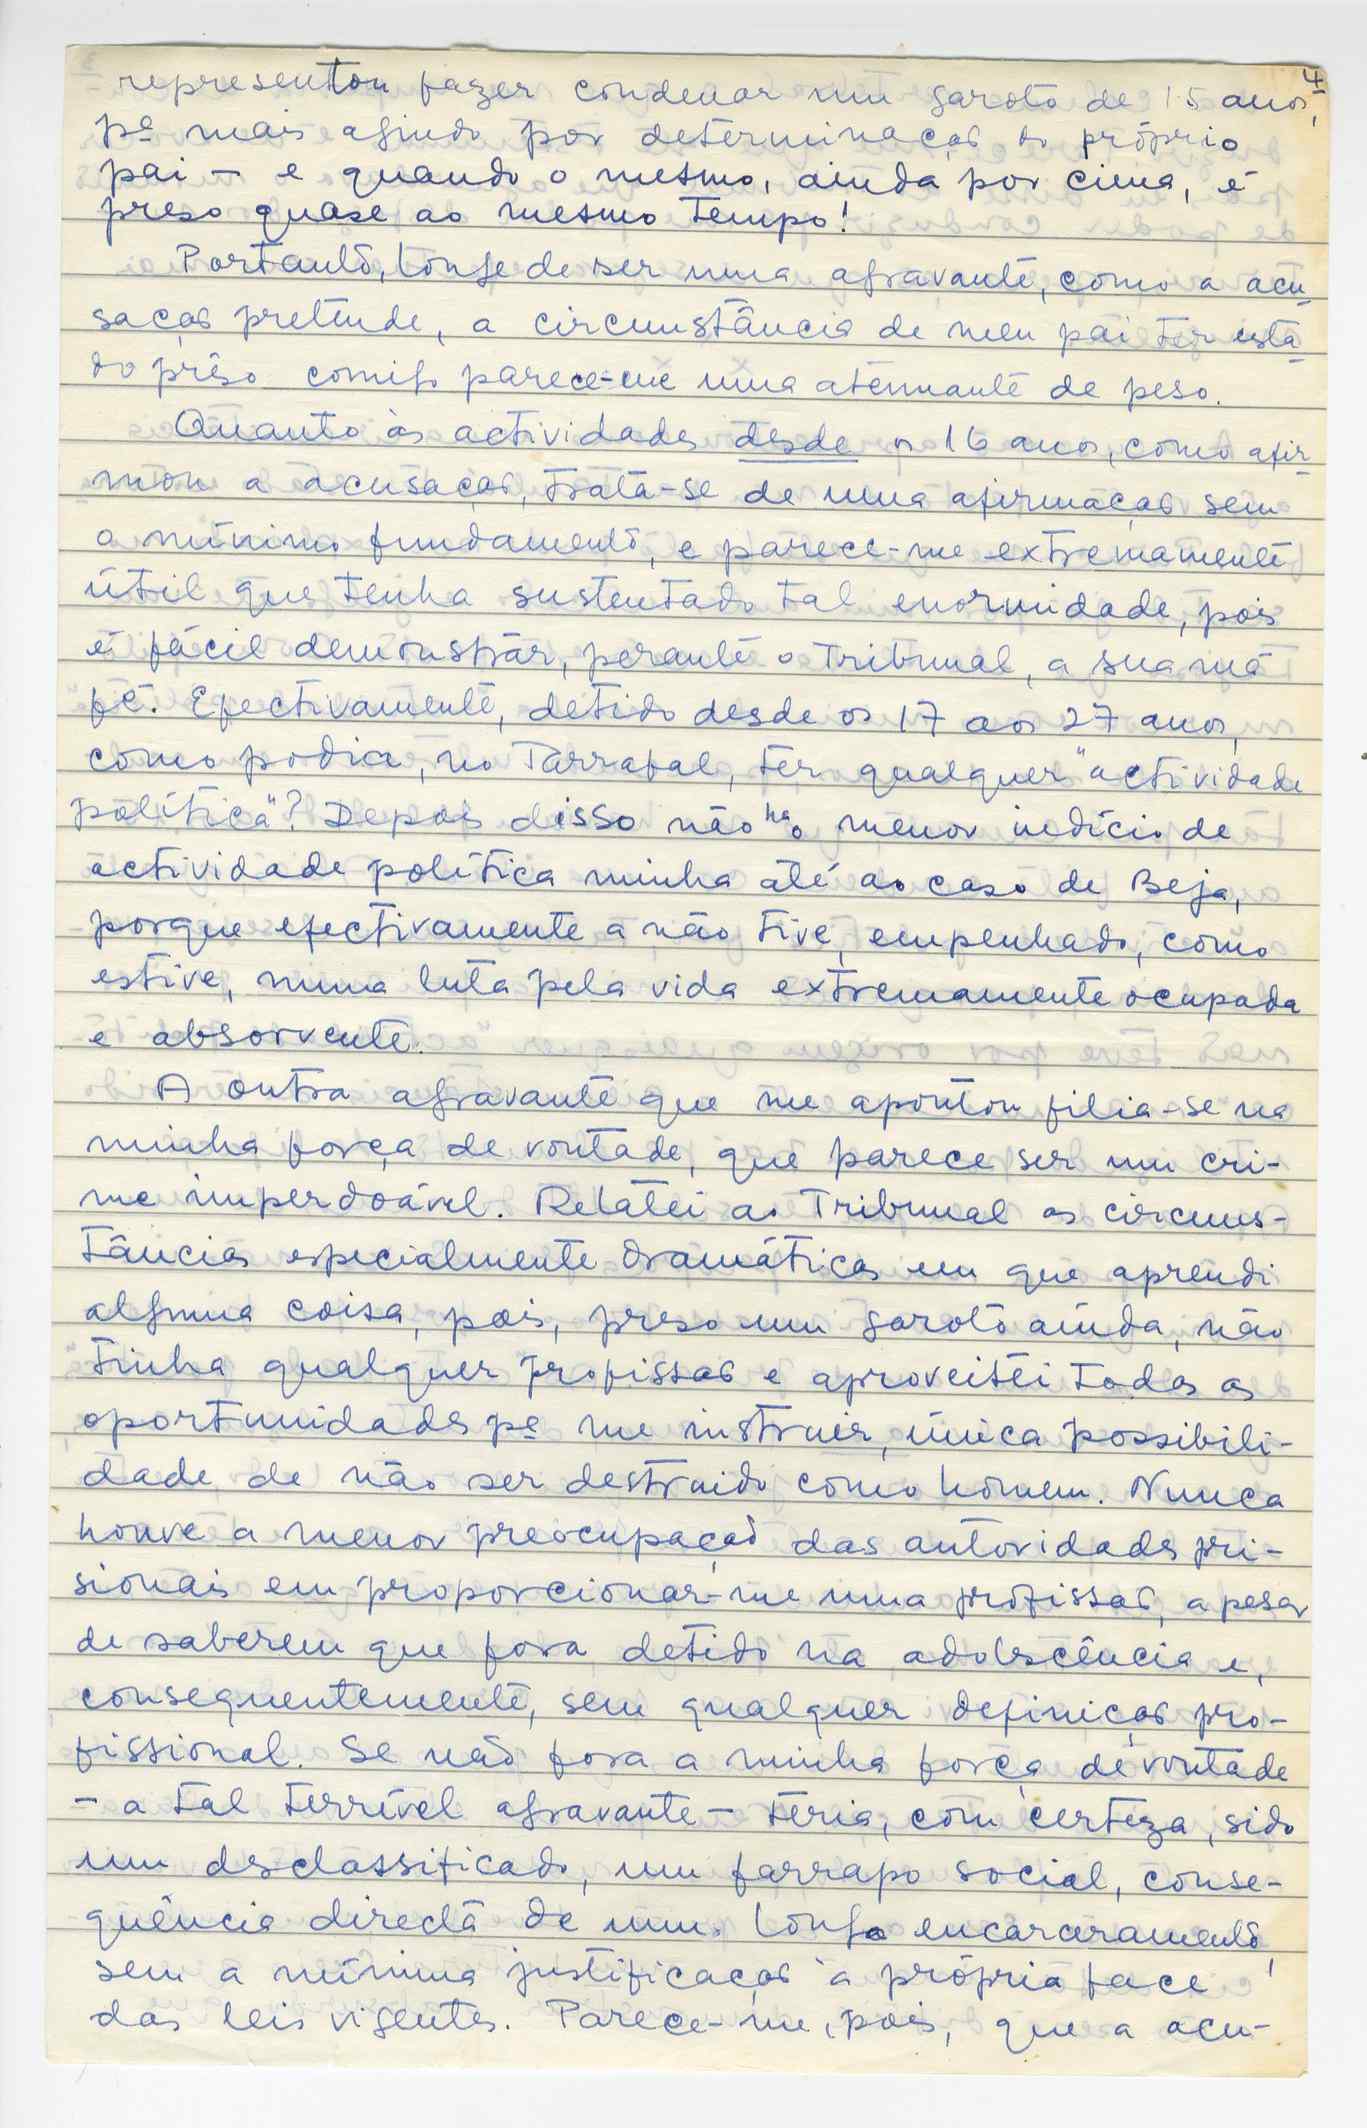 4
representou fazer condenar um garoto de 15 anos,
pª mais agindo por determinação do próprio
pai – e quando o mesmo, ainda por cima, é
preso quase ao mesmo tempo!
Portanto, longe de ser uma agravante, como a acu-
sação pretende, a circunstância de meu pai ter esta-
do prêso comigo parece-me uma atenuante de peso.
Quanto às actividades desde os 16 anos, como afir-
mou a acusação, trata-se de uma afirmação sem
o mínimo fundamento, e parece-me extremamente
útil que tenha sustentado tal enormidade, pois
é fácil demonstrar, perante o Tribunal, a sua má
fé. Efectivamente, detido desde os 17 aos 27 anos,
como podia, no Tarrafal, ter qualquer "actividade
política"? Depois disso não há o menor indício de
actividade política minha até ao caso de Beja,
porque efectivamente a não tive, empenhado, como
estive, numa luta pela vida extremamente ocupada
e absorvente.
A outra agravante que me apontou filia-se na
minha força de vontade, que parece ser um cri-
me imperdoável. Relatei ao Tribunal as circuns-
tâncias especialmente dramáticas em que aprendi
alguma coisa, pois, preso um garoto ainda, não
tinha qualquer profissão e aproveitei todas as
oportunidades pª me instruir, única possibili-
dade de não ser destruido como homem. Nunca
houve a menor preocupação das autoridades pri-
sionais em proporcionar-me uma profissão, apesar
de saberem que fora detido na adolescência e,
consequentemente, sem qualquer definição pro-
fissional. Se não fora a minha força de vontade
– a tal terrível agravante – teria, com certeza, sido
um desclassificado, um farrapo social, conse-
quência directa de um longo encarceramento,
sem a mínima justificação à própria face
das leis vigentes. Parece-me, pois, que a acu-